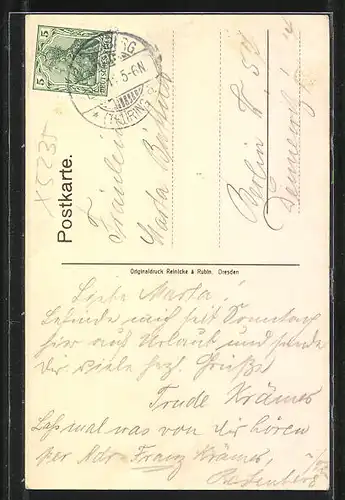 5
DEUTSCHES REICH
5-6N
(THÜRING.)
Postkarte.
Fräulein
Marta
Berlin W. 57
Originaldruck Reinicke & Rubin, Dresden
Liebe Marta!
Befinde mich seit Sonntag
hier auf Urlaub und sende
Dir viele hzl. Grüße
Trude Krämer
Laß mal was von Dir hören
per Adr. Franz Krämer,
X5235